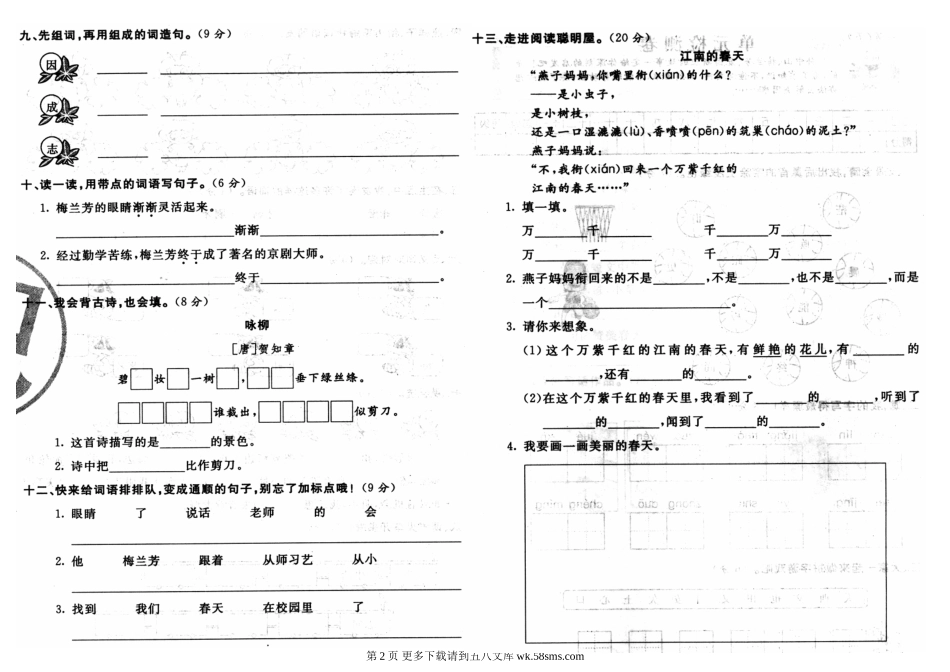 九、先组词,再用组成的词造句。(9分)
因 ________ ________________
成 ________ ________________
志 ________ ________________
十、读一读,用带点的词语写句子。(6分)
1. 梅兰芳的眼睛渐渐灵活起来。
________________渐渐________________。
2. 经过勤学苦练,梅兰芳终于成了著名的京剧大师。
________________终于________________。
十一、我会背古诗,也会填。(8分)
咏柳
[唐]贺知章
碧□妆□一树□,□□垂下绿丝绦。
□□□□谁裁出,□□□□似剪刀。
1. 这首诗描写的是________的景色。
2. 诗中把________比作剪刀。
十二、快来给词语排排队,变成通顺的句子,别忘了加标点哦!(9分)
1. 眼睛 了 说话 老师 的 会
2. 他 梅兰芳 跟着 从师习艺 从小
3. 找到 我们 春天 在校园里 了
十三、走进阅读聪明屋。(20分)
江南的春天
“燕子妈妈,你嘴里衔(xián)的什么?
——是小虫子,
是小树枝,
还是一口湿漉漉(lù)、香喷喷(pēn)的筑巢(cháo)的泥土?”
燕子妈妈说:
“不,我衔(xián)回来一个万紫千红的
江南的春天……”
1. 填一填。
万________千________ 千________万________
万________千________ 千________万________
2. 燕子妈妈衔回来的不是________,不是________,也不是________,而是
一个________________。
3. 请你来想象。
(1)这个万紫千红的江南的春天,有鲜艳的花儿,有________的
________,还有________的________。
(2)在这个万紫千红的春天里,我看到了________的________,听到了
________的________,闻到了________的________。
4. 我要画一画美丽的春天。
第 2 页 更多下载请到五八文库 wk.58sms.com